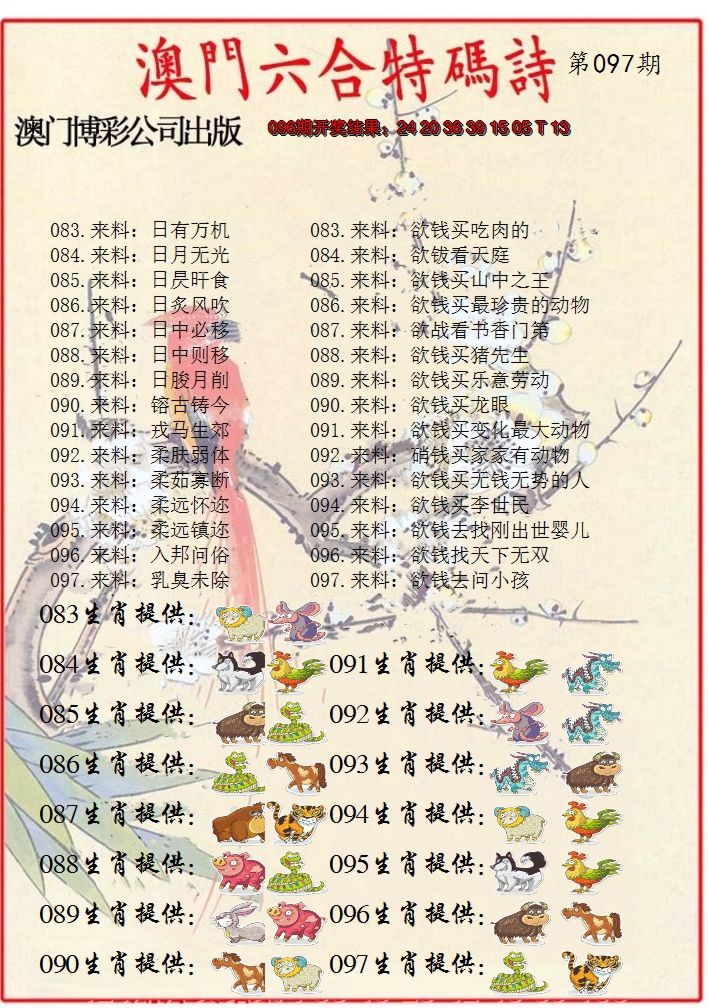 澳門六合特碼詩 第097期
澳门博彩公司出版 096期开奖结果：24 20 36 39 15 05 T 13
083.来料：日有万机 083.来料：欲钱买吃肉的
084.来料：日月无光 084.来料：欲钹看天庭
085.来料：日昃旰食 085.来料：欲钱买山中之王
086.来料：日炙风吹 086.来料：欲钱买最珍贵的动物
087.来料：日中必移 087.来料：欲战看书香门第
088.来料：日中则移 088.来料：欲钱买猪先生
089.来料：日朘月削 089.来料：欲钱买乐意劳动
090.来料：镕古铸今 090.来料：欲钱买龙眼
091.来料：戎马生郊 091.来料：欲钱买变化最大动物
092.来料：柔肤弱体 092.来料：硝钱买家家有动物
093.来料：柔茹寡断 093.来料：欲钱买无钱无势的人
094.来料：柔远怀迩 094.来料：欲钱买李世民
095.来料：柔远镇迩 095.来料：欲钱去找刚出世婴儿
096.来料：入邦问俗 096.来料：欲钱找天下无双
097.来料：乳臭未除 097.来料：欲钱去问小孩
083生肖提供：
084生肖提供： 091生肖提供：
085生肖提供： 092生肖提供：
086生肖提供： 093生肖提供：
087生肖提供： 094生肖提供：
088生肖提供： 095生肖提供：
089生肖提供： 096生肖提供：
090生肖提供： 097生肖提供：